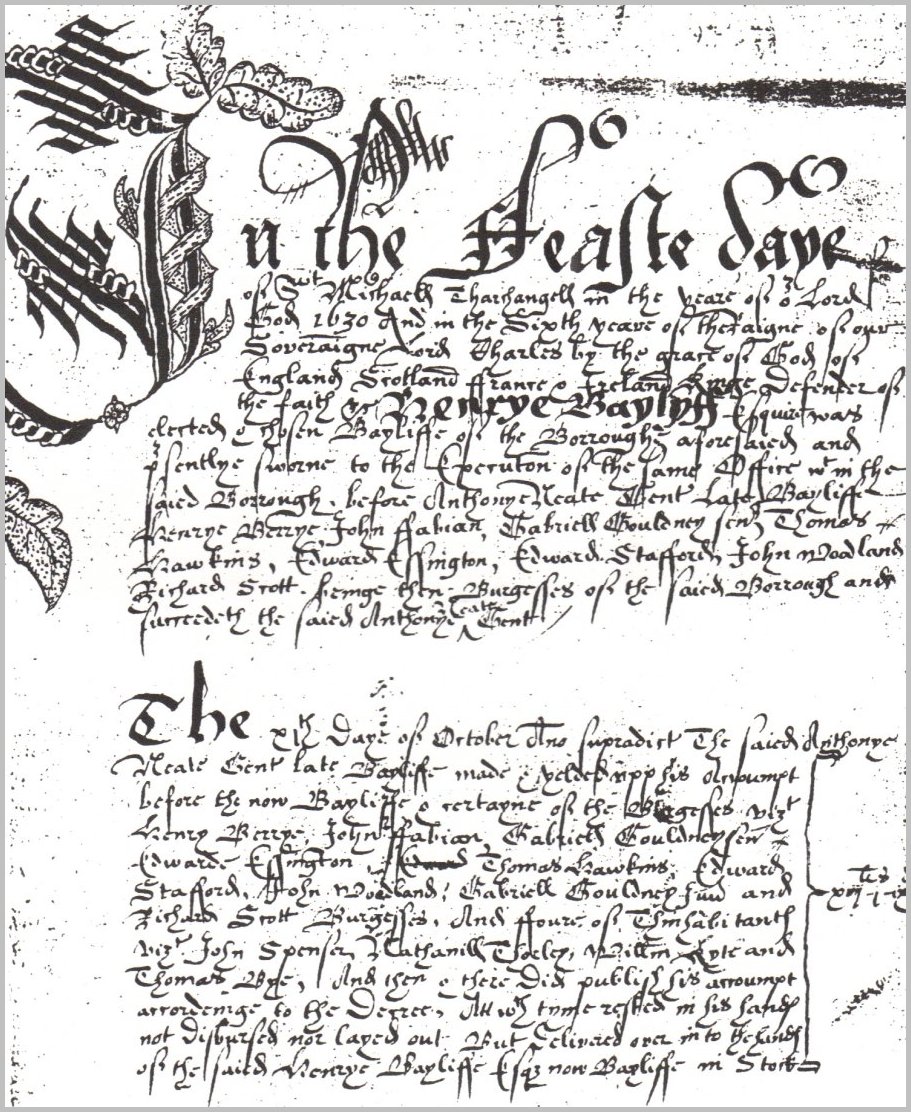 In the Ffeaste daye
of Sct Michaell Tharchangell in the yeare of or Lord
God 1630 And in the Sixth yeare of the raigne of our
Soveraigne Lord Charles by the grace of God of
England Scotland ffrance & Ireland Kinge Defender of
the faith &c Henrye Baylyff Esquire was
elected & chosen Bayliffe of the Borroughe aforesaied and
psentlye sworne to the Execution of the same Office wthin the
saied Borrough before Anthonye Neate Gent Late Bayliffe
Henrye Berrye John ffabian, Gabriell Gouldney senr Thomas
Hawkins, Edward Essington, Edward Stafford, John Woodland
Richard Scott beinge then Burgesses of the saied Borrough and
succeedeth the saied Anthonye Neate Gent
The xith Daye of October Ano supradict The saied Anthonye
Neate Gent late Bayliffe made & yelded upp his Accoumpt
before the now Bayliffe & certayne of the Burgesses vizt
Henry Berrye, John ffabian, Gabriell Gouldney sen
Edwarde Essington, Thomas Hawkins, Edward
Stafford, John Woodland, Gabriell Gouldney Jun and
Richard Scott Burgesses, And ffoure of Thinhabitants
vizt John Spenser, Nathaniell Willm and
Thomas Bye, And then & there did publish his accoumpt
accordeinge to the Decree, Att wch tyme rested in his hands
not disbursed nor layed out But delivered over into the hands
of the saied Henrye Bayliffe Esqz now Bayliffe in Stocke